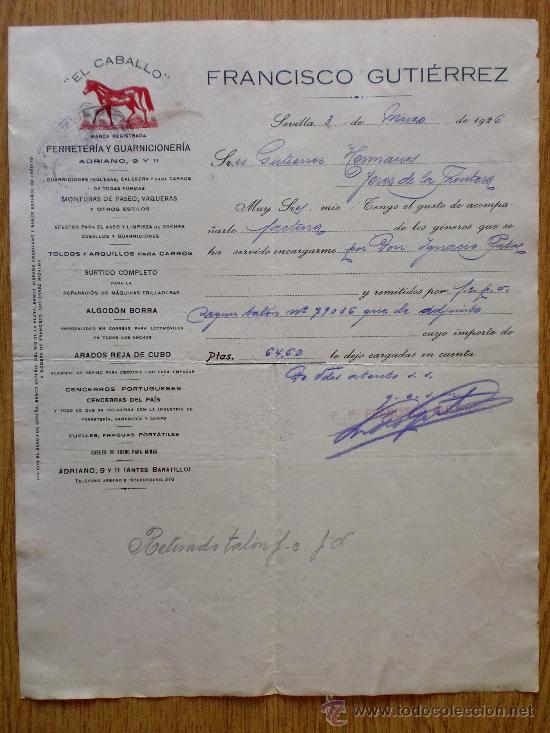 "EL CABALLO"
MARCA REGISTRADA
FERRETERÍA Y GUARNICIONERÍA
ADRIANO, 9 Y 11
GUARNICIONES INGLESAS, CALESERA Y PARA CARROS
DE TODAS FORMAS
MONTURAS DE PASEO, VAQUERAS
Y OTROS ESTILOS
EFECTOS PARA EL ASEO Y LIMPIEZA DE COCHES
CABALLOS Y GUARNICIONES
TOLDOS Y ARQUILLOS PARA CARROS
SURTIDO COMPLETO
PARA LA
REPARACIÓN DE MÁQUINAS TRILLADORAS
ALGODÓN BORRA
ESPECIALIDAD EN CORREAS PARA LOCOMÓVILES
EN TODOS LOS ANCHOS
ARADOS REJA DE CUBO
ALAMBRE DE ESPINO PARA CERCAS Y LISO PARA EMPACAR
CENCERROS PORTUGUESES
CENCERRAS DEL PAÍS
Y TODO LO QUE SE RELACIONA CON LA INDUSTRIA DE
FERRETERÍA, GANADERÍA Y CAMPO
FUELLES, FRAGUAS PORTÁTILES
CABLES DE ACERO PARA MINAS
ADRIANO, 9 Y 11 (ANTES BARATILLO)
TELÉFONO URBANO E INTERURBANO, 270
FRANCISCO GUTIÉRREZ
Sevilla 3 de Marzo de 1926
Sres Gutierrez Hermanos
Jerez de la Frontera
Muy Sres mio: Tengo el gusto de acompa-
ñarle factura de los géneros que se
ha servido encargarme por Don Ignacio
y remitidos por
segun talón nº 79036 que le adjunto
cuyo importe de
Ptas. 64,60 le dejo cargadas en cuenta.
De Vdes atento s. s.
q. e. s. m.
P. P.
Retirado talón f. c.
www.todocoleccion.net